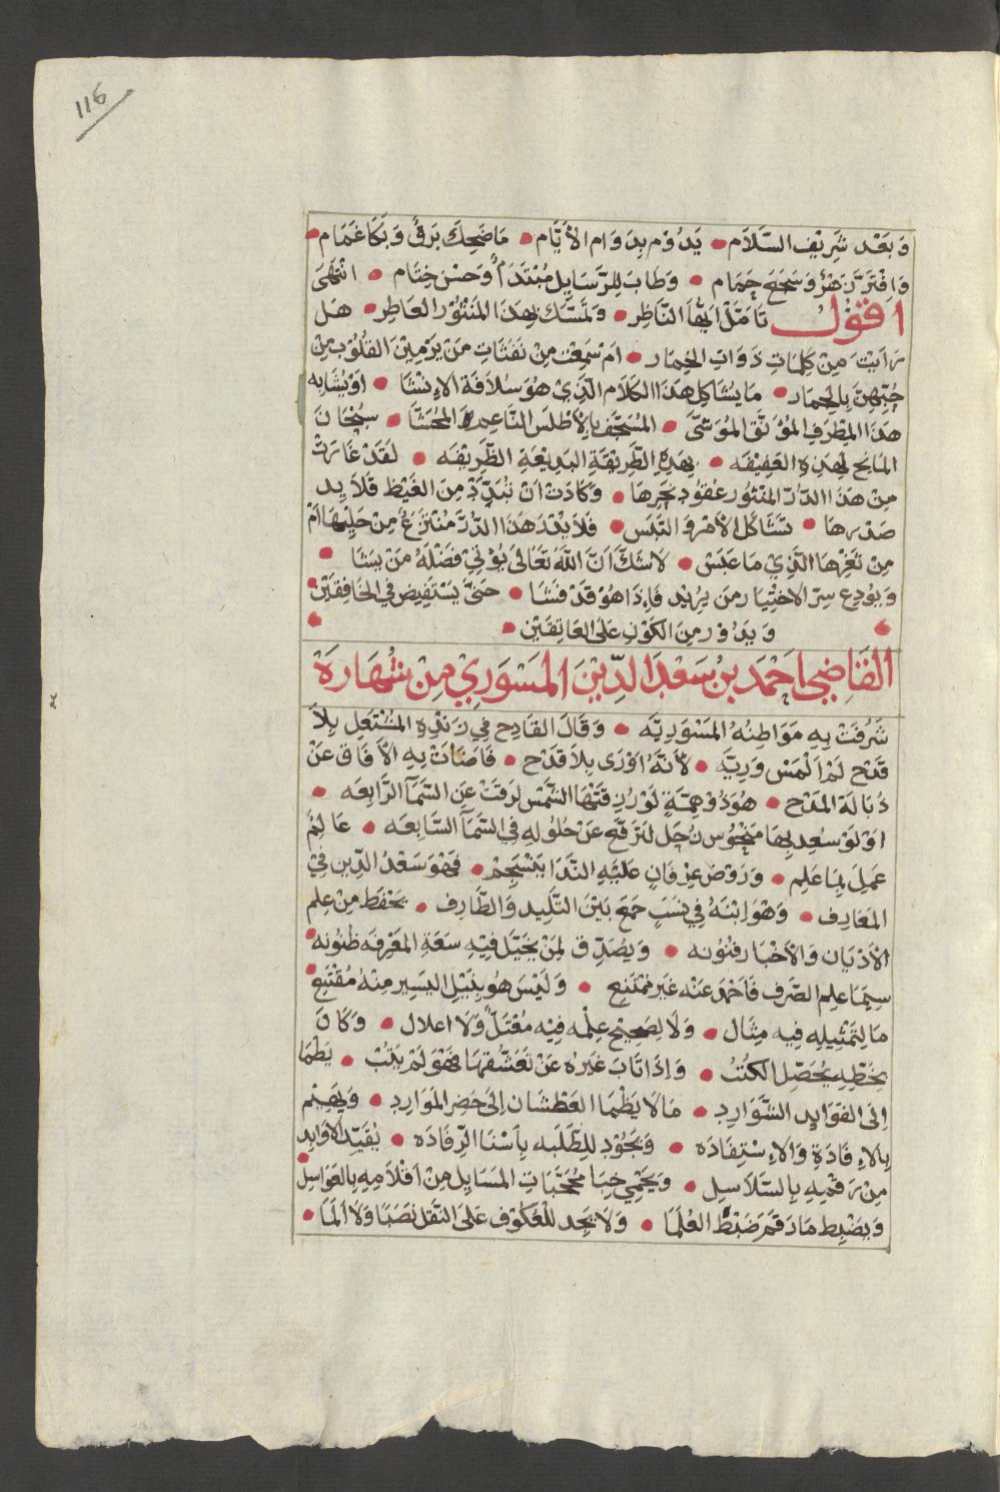 116
وَبَعْد شَرِيْف السَّلَام • يَدُوْم بِدَوَام الأيَّام • مَا ضَحِكَ بَرقٌ وَبَكَا غَمَام •
وَافْتَرَّ زَهْرٌ وَسَجَعَ حَمَام • وَطَابَ لِلرَّسَايِل مُبْتَدَأٌ وَحَسْن خِتَام • انْتَهَى
اقوُل تَامَّلْ ايُّهَا النَّاظِر • وَتَمَسَّك بِهَذَا المَنْثُوْر العَاطِر • هَل
رَايْتَ مِنْ كَلِمَاتِ ذَوَاتِ الخِمَار • ام سَمِعْتَ مِنْ نَفَثَاتِ مَنْ يَرْمِيْنَ القُلُوْب مِنْ
حُبِّهِنَّ بِالجِمَار • مَا يُشَاكِل هَذَا الكَلَام الَّذِيْ هُوَ سُلَافَة الاِنْشَا • اَوْ يُشَابِه
هَذَا المِطْرَفِ المُؤْنَق المُوَشَّى • المُسَجَّفِ بِالأطْلَس النَّاعِمِ المُحَشَّا • سُبْحَانَ
المَانِح لِهَذِهِ العَفِيْفَه • بِهَذِهِ الطَّرِيْقَةِ البَدِيْعَةِ الظَّرِيْفَه • لَقَدْ غَارَتْ
مِنْ هَذَا الدُّرِّ المَنْثُوْر عُقُوْد نَحْرِهَا • وَكَادَتْ اَنْ تُبَدِّدَ مِنَ الغَيْظِ قَلَايِد
صَدْرِهَا • تَشَاكَل الأَمْر وَالتَبَس • فَلَا يُدْرَ هَذَا الدُّرُّ مُنْتَزَعٌ مِنْ حَلْيِهَا اَمْ
مِنْ ثَغْرِهَا الَّذِيْ مَا عَبَس • لَا شَكَّ اَنَّ اللهَ تَعَالَى يُؤْتِيْ فَضْلَهُ مَنْ يَشَا •
وَيُوْدِع سِرّ الاخْتِيَار مَن يُرِيْد فَاِذَا هُوَ قَدْ فَشَا • حَتَّى يَسْتَفِيْض فِي الخَافِقَيْن •
وَيَدُوْر مِنَ الكَوْنِ عَلَى العَاتِقَيْن •
القَاضِي اَحْمَد بنُ سَعْدِ الدِّيْنَ المَسْوَرِيْ مِنْ شُهَارَهْ
شَرُفَتْ بِهِ مَوَاطِنُهُ المَسْوَرِيَّه • وَقَالَ القَادِح فِي زَنْدِهِ المُشْتَعِل بِلَا
قَدْح لَمْ اَلْمَسْ وَرِيَّه • لأَنَّهُ اوْرَى بِلَا قَدْح • فَاضَاتْ بِهِ الآفَاق عَنْ
ذُبَالَة المَدْح • هُوَ ذُوْ هِمَّةٍ لَوْ رُزِقَتْهَا الشَّمْس لَرَقَتْ عَنِ السَّمَآ الرَّابِعَه •
اوْ لَوْ سُعِد بِهَا مَنْحُوْس زُحَل لَتَرَفَّع عَنْ حُلُوْلِهِ فِي السَّمَآ السَّابِعَه • عَالِمٌ
عَمِلَ بِمَا عَلِم • وَرَوْض عِرْفَانٍ عَلَيْهِ النَّدَا يَنْسَجِمْ • فَهْوَ سَعْدُ الدِّين فِيْ
المَعَارِف • وَهْوَ ابْنُهُ فِي نَسَبٍ جَمَعَ بَيْنَ التَّلِيد وَالطَّارِف • يَحْفَظ مِنْ عِلمِ
الأدْيَان وَالأخْبَار فُنُوْنه • وَيُصَدِّق لِمَنْ يَخَيَّل فِيْهِ سَعَةِ المَعْرِفَه ظُنُوْنه •
سِيَمَا عِلم الصَّرف فَاَحْمَدَ عَنْه غَير مُمْتَنِع • وَلَيْسَ هُوَ بِنَيْل اليَسِير مِنْهُ مُقْتَنِعٌ •
مَا لِتَمْثِيلِهِ فِيهِ مِثَال • وَلَا لِصَحِيْحِ عِلْمه فِيْهِ مُعْتَلٌّ وَلَا اعلَال • وَكَانَ
بِخَطِّهِ يُحَصِّل الكُتُبْ • وَاِذَا تَابَ غَيْرهُ عَنْ تَعَشُّقِهَا فَهْوَ لَمْ يَتُبْ • يَظْمَا
اِلَى الفَوَايِدِ الشَّوَارِد • مَا لَا يَظْمَا العَطْشَان اِلَى خَضِر المَوَارِد • وَيَهِيْم
بِالاِفَادَةِ وَالاِسْتِفَادَه • وَيَجُوْد لِلطَّلَبَه بِاَسْنَا الرِّفَادَه • يُقَيِّد الأوَابِد
مِنْ رَقْمِهِ بِالسَّلَاسِل • وَيَحْمِي خِبَا مُخَبَّئاتِ المَسَايِل مِنْ اَقْلَامِهِ بِالعَوَاسِل •
وَيَضْبِط مَا رَقَمَ ضَبْطَ العُلَمَا • وَلَا يَجِد لِلعُكُوْف عَلَى النَّقْل نَصَبًا وَلَا اَلَمَا •